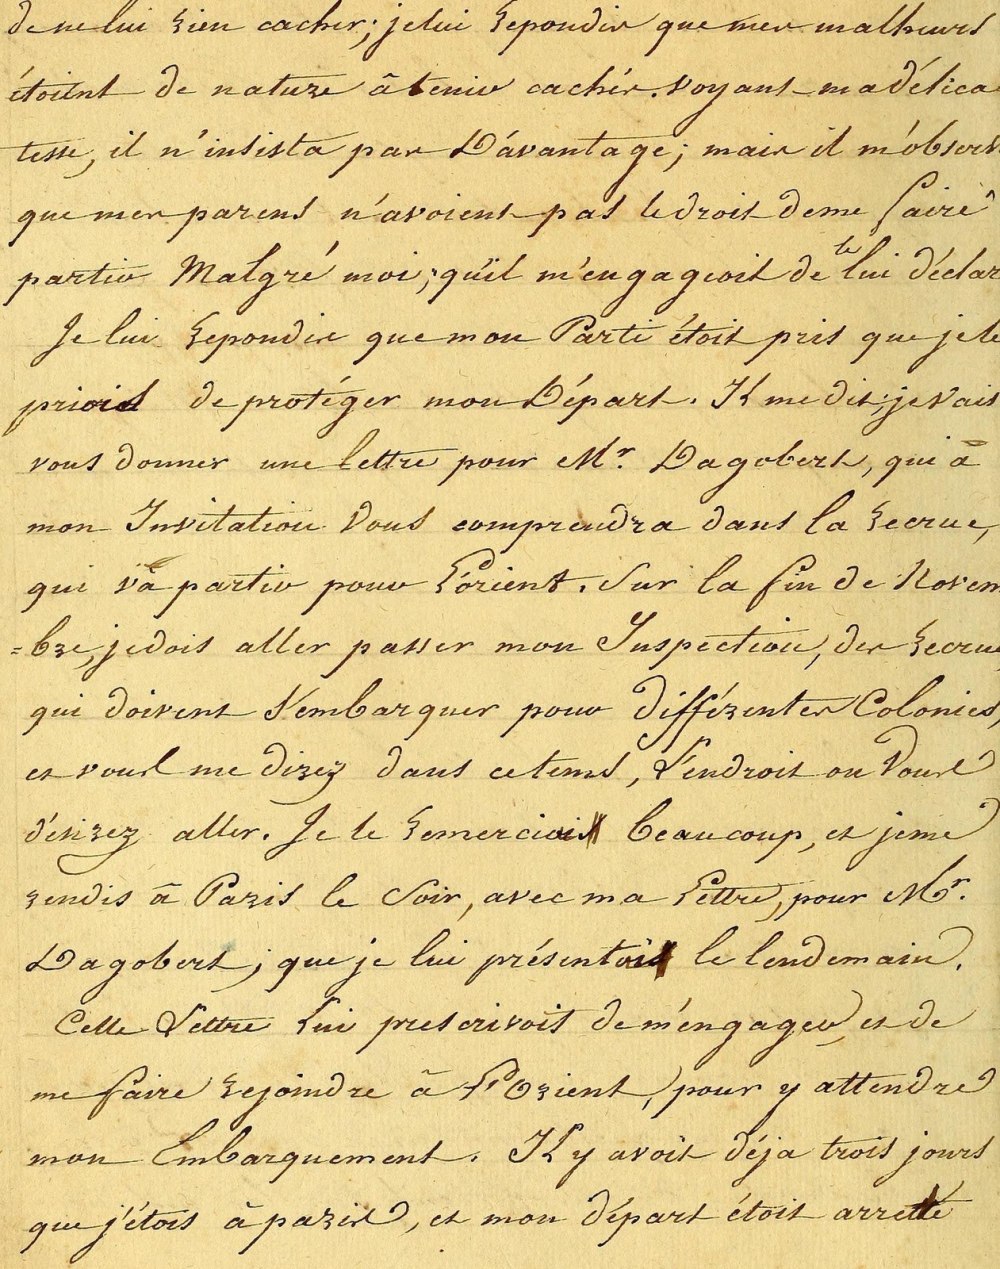 de ne lui rien cacher; je lui repondis que mes malheurs
étoient de nature à tenir cachés. Voyant ma délica
tesse, il n'insista pas D'avantage; mais il m'observ
que mes parens n'avoient pas le droit de me faire
partir Malgré moi; qu'il m'engageoit de le lui déclar
Je lui repondis que mon Parti étoit pris que je le
priois de protéger mon Départ. Il me dit; je vais
vous donner une lettre pour Mr. Dagobert, qui à
mon Invitation Vous comprendra dans la recrue,
qui va partir pour L'orient. Sur la fin de Novem
=bre, je dois aller passer mon Inspection, des recrues
qui doivent s'embarquer pour différentes Colonies,
et vous me direz dans ce tems, L'endroit ou Vous
d'esirez aller. Je le remerciois beaucoup, et je me
rendis à Paris le Soir, avec ma Lettre, pour Mr.
Dagobert; que je lui présentois le lendemain.
Cette Lettre Lui prescrivoit de m'engager, et de
me faire rejoindre à L'Orient, pour y attendre
mon Embarquement. Il y avoit déja trois jours
que j'étois à paris, et mon départ étoit arretté